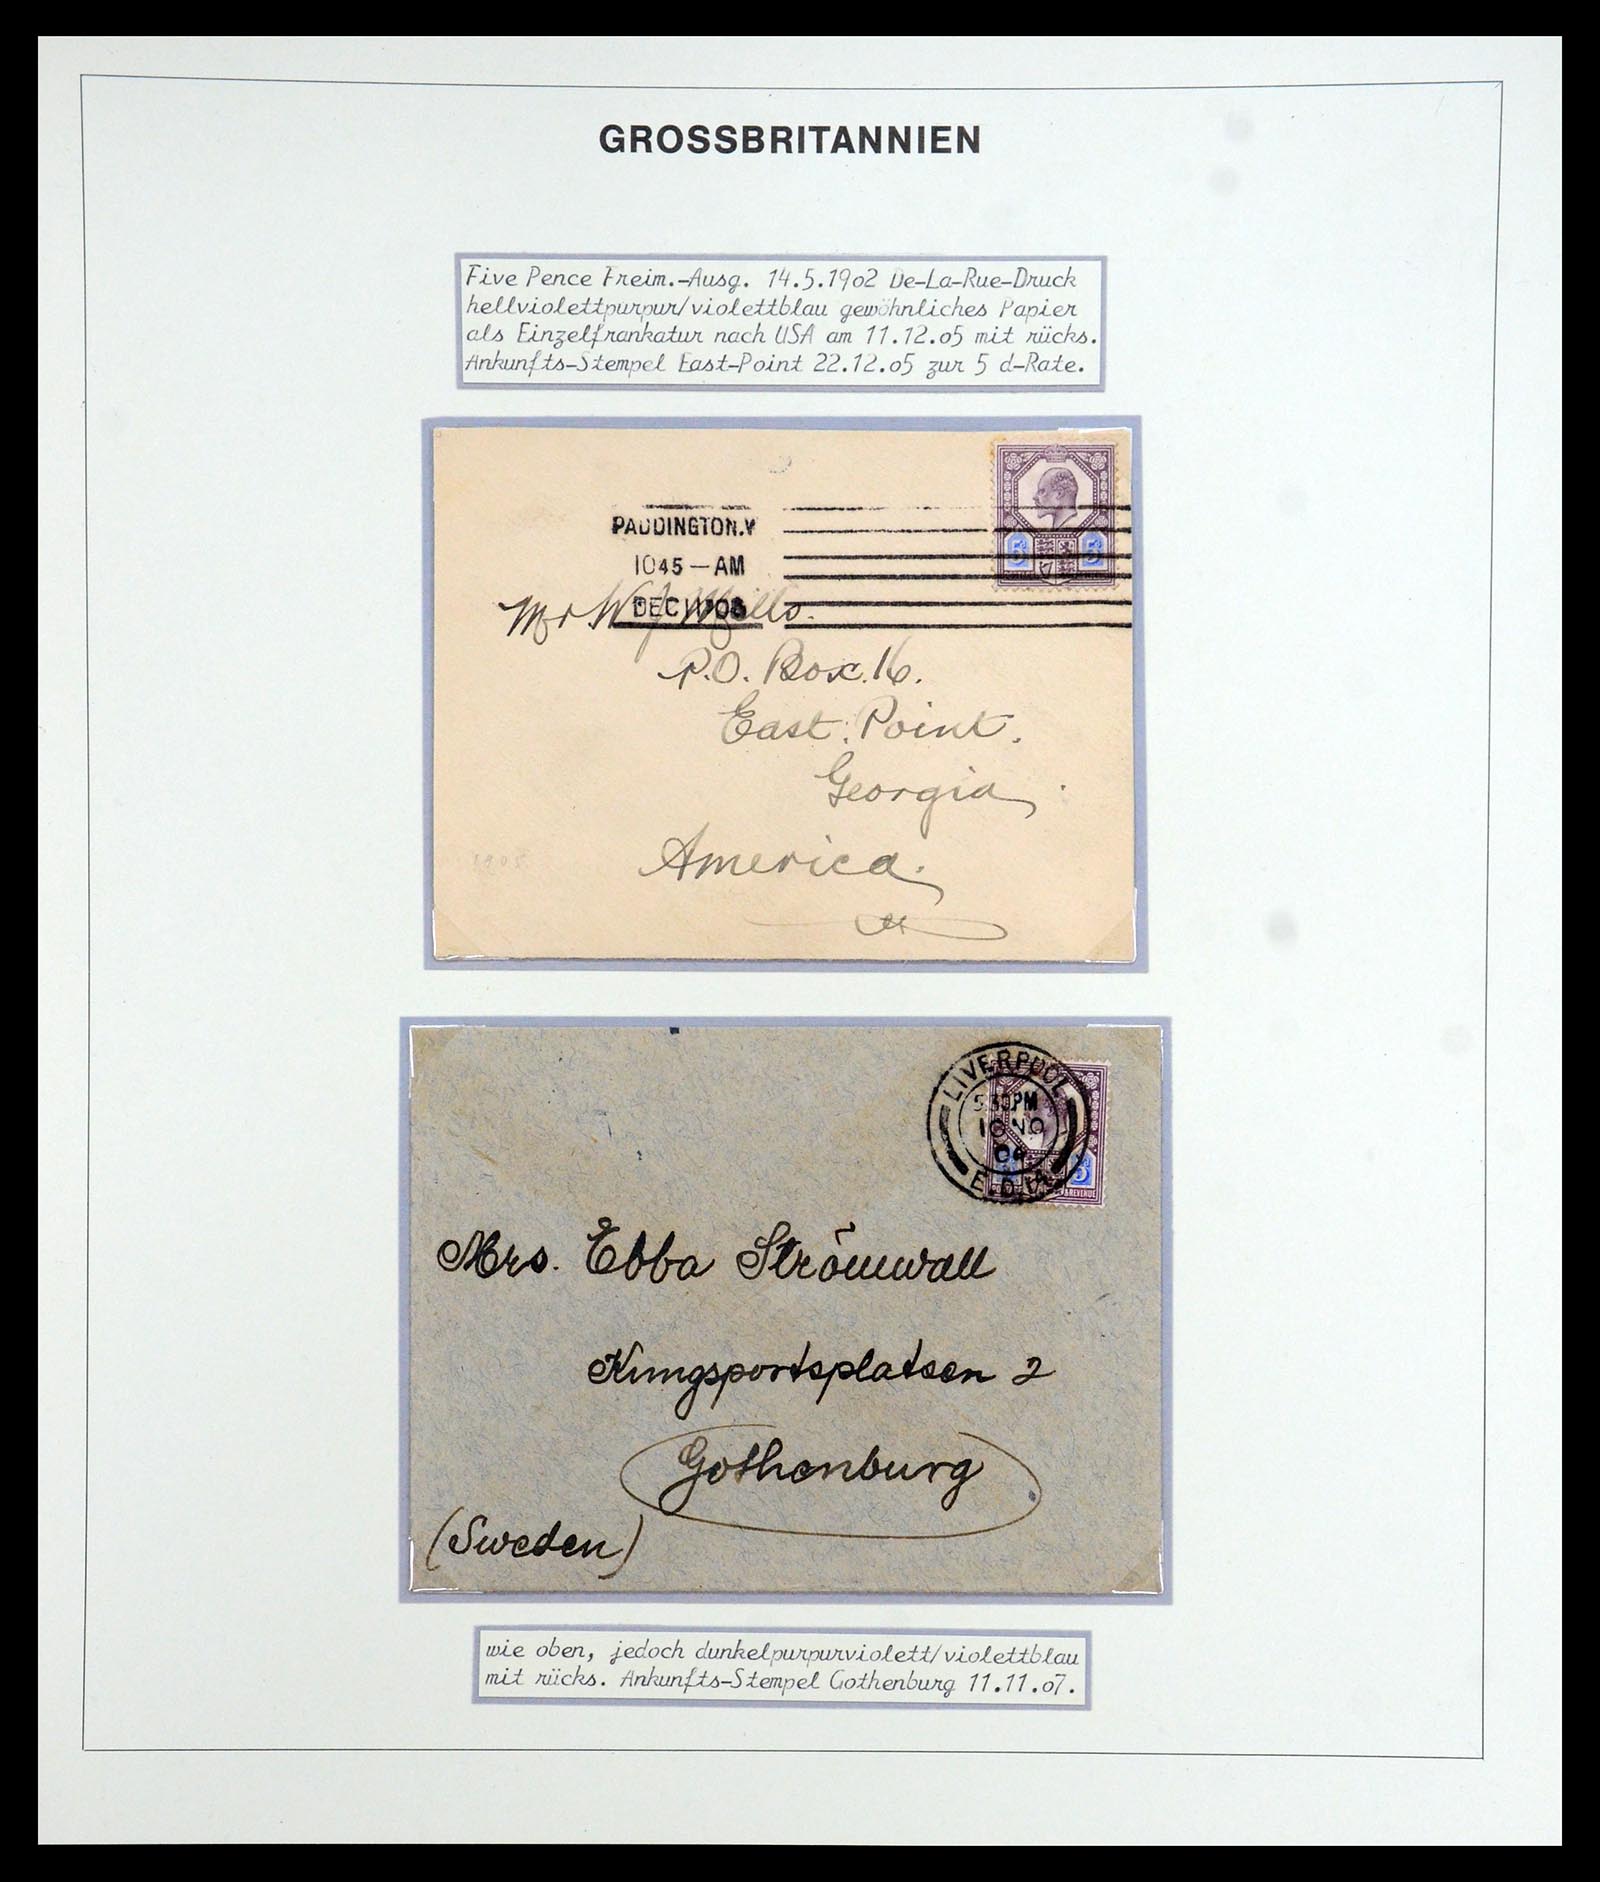 GROSSBRITANNIEN
Five Pence Freim.-Ausg. 14.5.1902 De-La-Rue-Druck
hellviolettpurpur/violettblau gewöhnliches Papier
als Einzelfrankatur nach USA am 11.12.05 mit rücks.
Ankunfts-Stempel East-Point 22.12.05 zur 5 d-Rate.
PADDINGTON.W
1045 — AM
DEC 11 05
5 5
Mr W. J. Mills.
P.O. Box. 16.
East. Point.
Georgia
America.
1905
LIVERPOOL
5 30 PM
10 NO
E.D.
5
& REVENUE
Mrs. Ebba Strömwall
Kungsportsplatsen 2
Gothenburg
(Sweden)
wie oben, jedoch dunkelpurpurviolett/violettblau
mit rücks. Ankunfts-Stempel Gothenburg 11.11.07.